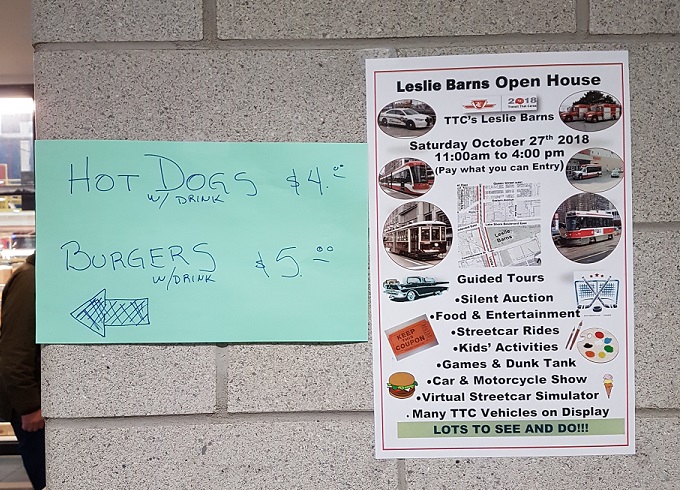 HOT DOGS $4.00
W/ DRINK
BURGERS $5.00
W/DRINK
Leslie Barns Open House
2018
TTC's Leslie Barns
Saturday October 27th 2018
11:00am to 4:00 pm
(Pay what you can Entry)
Leslie
Barns
Guided Tours
•Silent Auction
•Food & Entertainment
•Streetcar Rides
•Kids' Activities
•Games & Dunk Tank
•Car & Motorcycle Show
•Virtual Streetcar Simulator
• Many TTC Vehicles on Display
KEEP
COUPON
LOTS TO SEE AND DO!!!